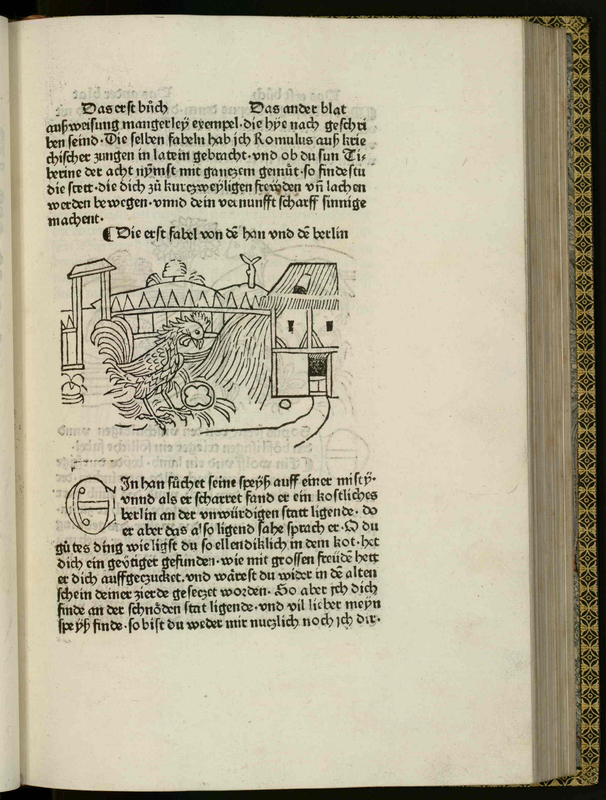 Das erst bůch Das ander blat
außweisung mangerley exempel. die hye nach geschri
ben seind. Die selben fabeln hab ich Romulus auß krie
chischer zungen in latein gebracht. vnd ob du sun Ti-
berine der acht nÿmst mit ganczem gemůt. so findestu
die stett. die dich zů kurczweÿligen frewden vñ lachen
werden bewegen. vnnd dein vernunfft scharff sinnige
machent.
¶ Die erst fabel von dē han vnd dē berlin
EIn han sůchet seine speÿß auff einer mistÿ.
vnnd als er scharret fand er ein kostliches
berlin an der vnwürdigen statt ligende. do
er aber das also ligend sahe sprach er. O du
gůtes ding wie ligst du so ellendiklich in dem kot. het
dich ein geÿtiger gefunden. wie mit grossen freüdē hett
er dich auffgeczucket. vnd wärest du wider in dē alten
schein deiner zierde geseczet worden. So aber ich dich
finde an der schnöden stat ligende. vnd vil lieber meÿn
speÿß finde. so bist du weder mir nuczlich noch ich dir.